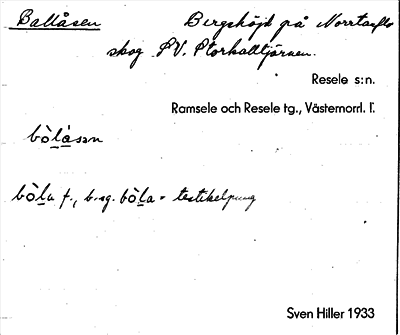 Ballåsen Bergshöjd på Norrtanflo
skog SV. Storkalltjärnen.
Resele s:n.
Ramsele och Resele tg., Västernorrl. l.
bòlåsən
bòla f., b. sg. bòla = testikelpung
Sven Hiller 1933